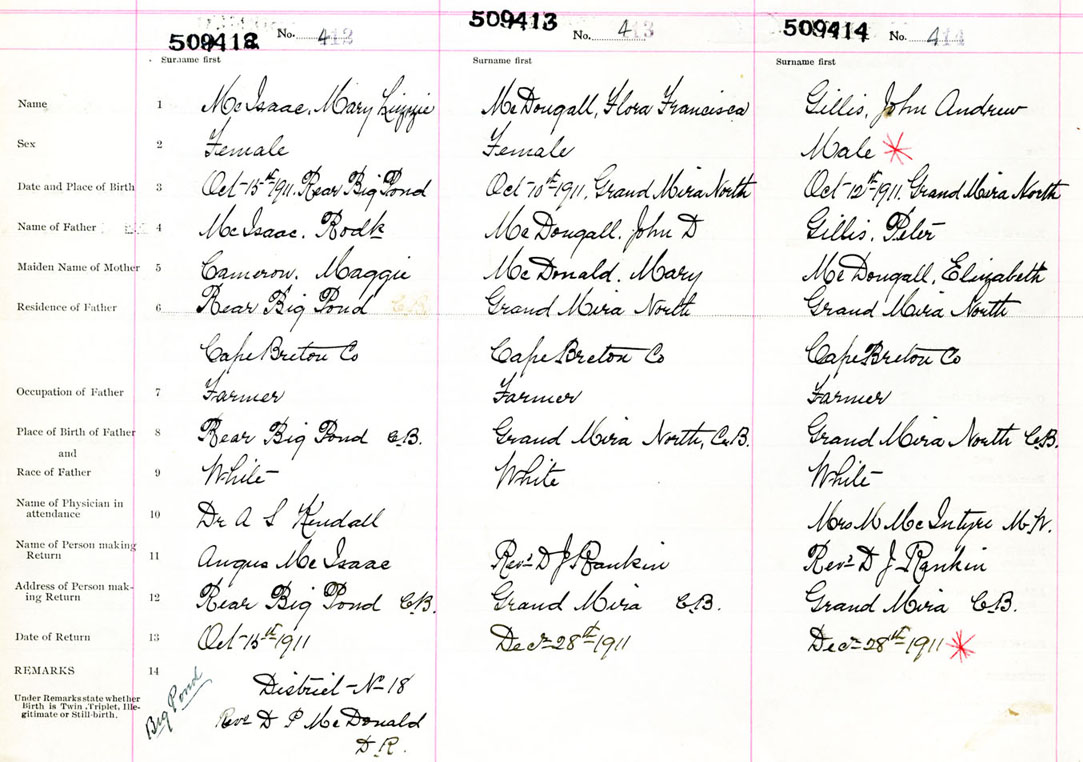 509412 No. 412 509413 No. 413 509414 No. 414
Surname first Surname first Surname first
Name 1 McIsaac, Mary Lizzie McDougall, Flora Francisca Gillis, John Andrew
Sex 2 Female Female Male
Date and Place of Birth 3 Oct 15th 1911, Rear Big Pond Oct 10th 1911, Grand Mira North Oct 12th 1911, Grand Mira North
Name of Father 4 McIsaac, Rodk McDougall, John D Gillis, Peter
Maiden Name of Mother 5 Cameron, Maggie McDonald, Mary McDougall, Elizabeth
Residence of Father 6 Rear Big Pond C.B. Grand Mira North Grand Mira North
Cape Breton Co Cape Breton Co Cape Breton Co
Occupation of Father 7 Farmer Farmer Farmer
Place of Birth of Father 8 Rear Big Pond C.B. Grand Mira North, C.B. Grand Mira North C.B.
and
Race of Father 9 White White White
Name of Physician in
attendance 10 Dr A S Kendall Mrs M McIntyre M.W.
Name of Person making
Return 11 Angus McIsaac Revd D J Rankin Revd D J Rankin
Address of Person mak-
ing Return 12 Rear Big Pond C.B. Grand Mira C.B. Grand Mira C.B.
Date of Return 13 Oct 15th 1911 Decr 28th 1911 Decr 28th 1911
REMARKS 14
Under Remarks state whether
Birth is Twin, Triplet, Ille-
gitimate or Still-birth.
Big Pond
District No 18
Revd D P McDonald
D.R.